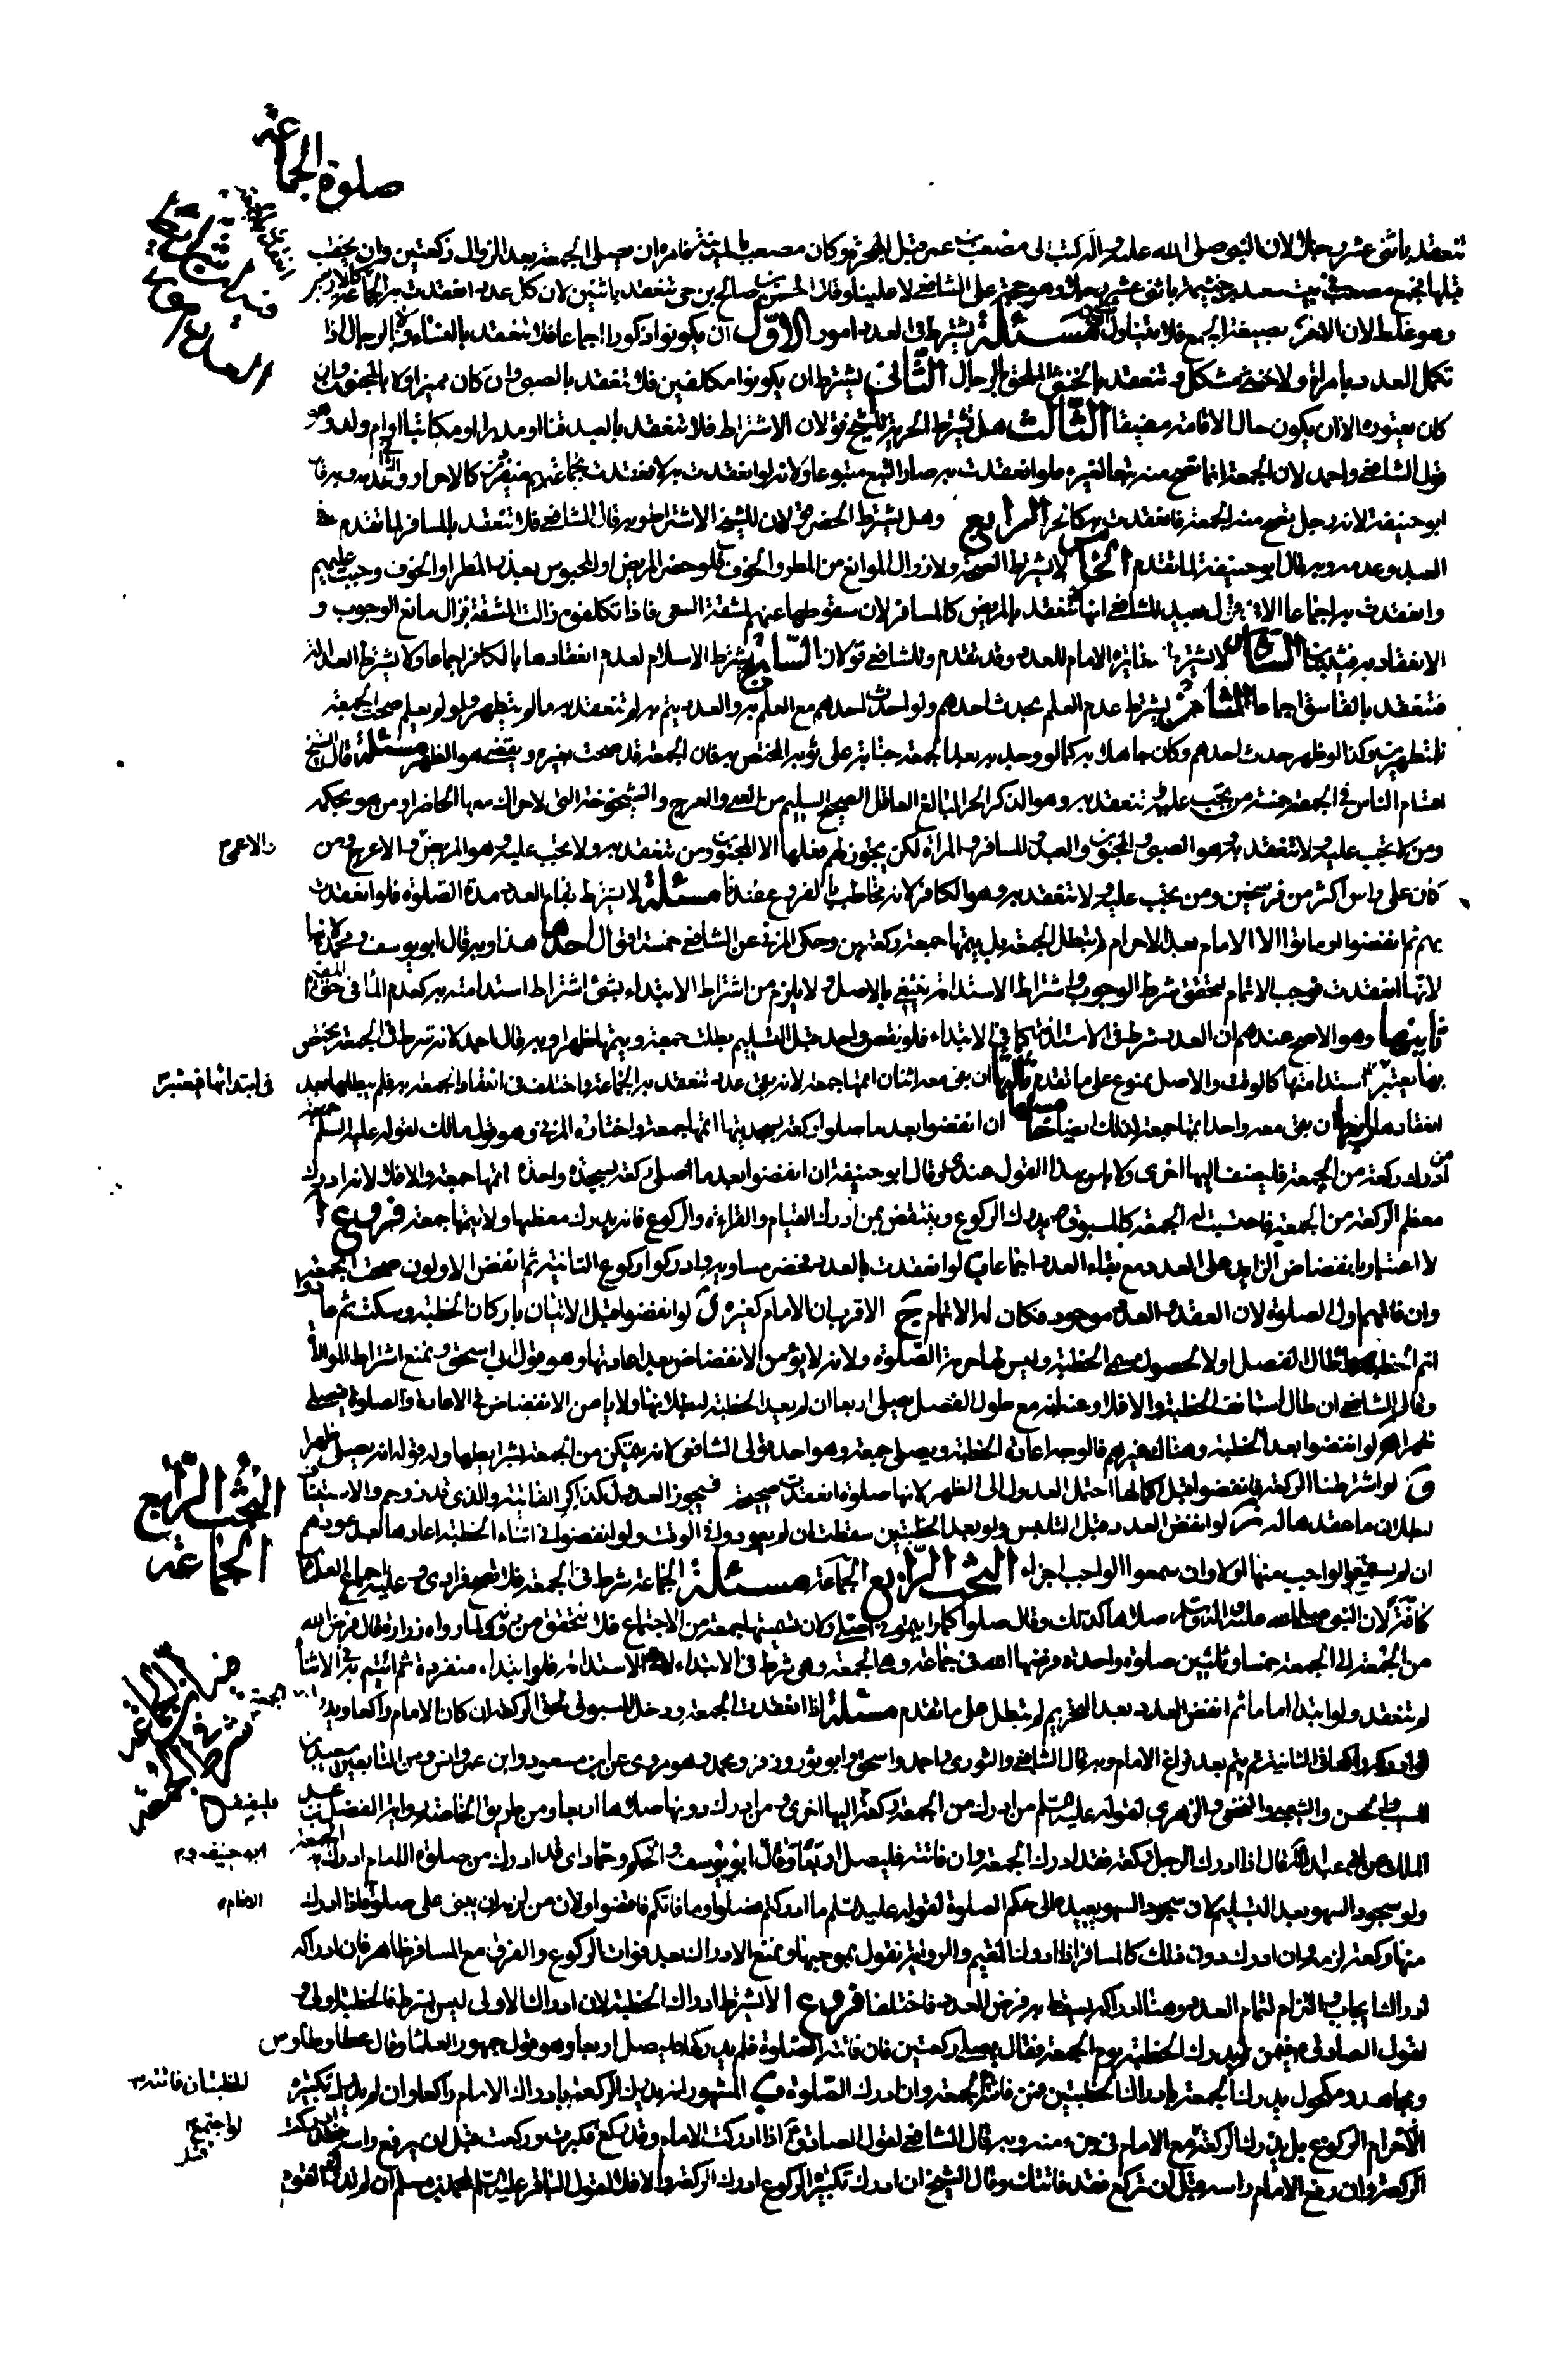 صلوة الجماعة
تنعقد باثنى عشر رجلا لان النبى صلى الله عليه وآله كتب الى مصعب بن عمير قبل الهجرة وكان مصعب بالمدينة فامره ان يصلى الجمعة بعد الزوال ركعتين وان يخطب
قبلها فجمع مصعب فى بيت سعد بن خيثمة باثنى عشر رجلا وهو حجة على الشافعى لا علينا وقال الحسن بن صالح بن حى تنعقد باثنين لان كل عدد انعقدت به الجماعة
وهو غلط لان الامر بصيغة الجمع فلا يتناول مسئلة يشترط فى العدد امور الاول ان يكونوا ذكورا اجماعا فلا تنعقد بالنساء ولا بالرجال اذا
تكمل العدد بامراة ولا خنثى مشكل وتنعقد بالخنثى الملحق بالرجال الثانى يشترط ان يكونوا مكلفين فلا تنعقد بالصبى وان كان مميزا ولا بالمجنون وان
كان يعتوره الا ان يكون حال الاقامة مفيقا الثالث هل تشترط الحرية للشيخ قولان الاشتراط فلا تنعقد بالعبد قنا او مدبرا او مكاتبا او ام ولد وهو
قول الشافعى واحمد لان الجمعة انما تصح منه تبعا لغيره فلو انعقدت به صار التبع متبوعا ولانه لو انعقدت به لانعقدت بجماعتهم منفردين كالاحرار والثانى عدمه وبه قال
ابو حنيفة لانه رجل تصح منه الجمعة فانعقدت به كالحر الرابع وهل يشترط الحضر قولان للشيخ الاشتراط وبه قال الشافعى فلا تنعقد بالمسافر لما تقدم فى
العبد وعدمه وبه قال ابو حنيفة لما تقدم الخامس لا يشترط الصحة ولا زوال الموانع من المطر والخوف فلو حضر المريض او المحبوس بعذر المطر او الخوف وجبت عليهم
وانعقدت به اجماعا الا فى قول بعيد للشافعى انها لا تنعقد بالمريض كالمسافر لان سقوطها عنهم لمشقة السعى فاذا تكلفوه زالت المشقة فزال مانع الوجوب و
الانعقاد به السادس لا يشترط مغايرة الامام للعدد وقد تقدم وللشافعى قولان السابع يشترط الاسلام لعدم انعقادها بالكافر اجماعا ولا يشترط العدالة
فتنعقد بالفاسق اجماعا الثامن يشترط عدم العلم بحدث احدهم ولو احدث احدهم مع العلم به والعدد يتم به لم تنعقد به ما لم يتطهر ولو لم يعلم صحت الجمعة
للمتطهرين وكذا لو ظهر حدث احدهم وكان جاهلا به كما لو وجد به بعد الجمعة جنابة على ثوبه المختص به فان الجمعة قد صحت لغيره ويقضى هو الظهر مسئلة قال الشيخ
اقسام الناس فى الجمعة خمسة من تجب عليه وتنعقد به وهو الذكر الحر البالغ العاقل الصحيح السليم من العمى والعرج والشيخوخة التى لا حراك معها الحاضر او من هو بحكمه
ومن لا تجب عليه ولا تنعقد به وهو الصبى والمجنون والعبد والمسافر والمراة لكن يجوز لهم فعلها الا المجنون ومن تنعقد به ولا تجب عليه وهو المريض والاعرج ومن
والاعمى
كان على راس اكثر من فرسخين ومن تجب عليه ولا تنعقد به وهو الكافر لانه مخاطب بالفروع عندنا مسئلة لا يشترط بقاء العدد مدة الصلوة فلو انعقدت
بهم ثم انفضوا او ماتوا الا الامام بعد الاحرام لم تبطل الجمعة بل يتمها جمعة ركعتين وحكى المزنى عن الشافعى خمسة اقوال احدها هذا وبه قال ابو يوسف ومحمد
لانها انعقدت فوجب الاتمام لتحقق شرط الوجوب واشتراط الاستدامة ينتفى بالاصل ولا يلزم من اشتراط الابتداء بشئ اشتراط استدامته به كعدم الماء فى حق المتيمم
ثانيها وهو الاصح عندهم ان العدد شرط فى الاستدامة كما فى الابتداء فلو نقص واحد قبل التسليم بطلت جمعة ويتمها ظهرا وبه قال احمد لانه شرط فى الجمعة يختص
بها يعتبر استدامتها كالوقت والاصل ممنوع على ما تقدم ثالثها ان بقى معه اثنان اتمها جمعة لانه بقى عدد تنعقد به الجماعة واختلف فى انعقاد الجمعة به فلم يبطلها بعد
فى ابتدائها فيعتبر
انعقادها رابعها ان بقى معه واحد اتمها جمعة لذلك ايضا خامسها ان انفضوا بعد ما صلوا ركعة بسجدتيها اتمها جمعة واختاره المزنى وهو قول مالك لقوله عليه السلم
من ادرك ركعة من الجمعة فليضف اليها اخرى ولا باس بهذا القول عندى وقال ابو حنيفة ان انفضوا بعد ما صلى ركعة بسجدة واحدة اتمها جمعة والا فلا لانه ادرك
معظم الركعة من الجمعة فاحتسبت له الجمعة كالمسبوق يدرك الركوع وينتقض بمن ادرك القيام والقراءة والركوع فانه يدرك معظمها ولا يتمها جمعة فروع ا
لا اعتبار بانفضاض الزايد على العدد مع بقاء العدد اجماعا ب لو انعقدت بالعدد فحضر مساويه وادركوا ركوع الثانية ثم انفض الاولون صحت الجمعة
وان فاتهم اول الصلوة لان العقد والعدد موجود فكان له الاتمام ج الاقرب ان الامام كغيره د لو انفضوا قبل الاتيان باركان الخطبة وسكت ثم عادوا
اتم الخطبة سواء طال الفصل او لا لحصول مسمى الخطبة وليس لها حرمة الصلوة ولانه لا يؤمن الانفضاض بعد اعادتها وهو قول ابى اسحق ونمنع اشتراط الموالاة
وقال الشافعى ان طال استانف الخطبة والا فلا وعنه انه مع طول الفصل يصلى اربعا ان لم يعد الخطبة لبطلانها ولا يامن الانفضاض فى الاعادة والصلوة فيصلى
ظهرا ه لو انفضوا بعد الخطبة وهناك غيرهم فالوجه اعادة الخطبة ويصلى جمعة وهو احد قولى الشافعى لانه يتمكن من الجمعة بشرايطها وله قول انه يصلى ظهرا
و لو اشترطنا الركعة فانفضوا قبل اكمالها احتمل العدول الى الظهر لانها صلوة انعقدت صحيحة فيجوز العدول كذاكر الفايتة والذى قد زوحم والاستيناف
لبطلان ما عقدها له ز لو انفض العدد قبل التلبس ولو بعد الخطبتين سقطت ان لم يعودوا فى الوقت ولو انفضوا فى اثناء الخطبة اعادها بعد عودهم
ان لم يسمعوا الواجب منها اولا وان سمعوا الواجب اجزاء البحث الرابع الجماعة مسئلة الجماعة شرط فى الجمعة فلا تصح فرادى وعليه اجماع العلماء
البحث الرابع الجماعة
كافة لان النبى صلى الله عليه وآله صلاها كذلك وقال صلوا كما رايتمونى اصلى وكان تسميتها جمعة من الاجتماع فلا تتحقق من دونه ولما رواه زرارة قال فرض الله
من الجمعة الى الجمعة خمسا وثلثين صلوة واحدة فرضها الله فى جماعة وهى الجمعة وهى شرط فى الابتداء لا الاستدامة فلو ابتداء منفردا ثم ائتم به فى الاثناء
لم تنعقد ولو ابتدا اماما ثم انفض العدد بعد التحريم لم تبطل على ما تقدم مسئلة اذا انعقدت الجمعة ودخل المسبوق لحق الركعة ان كان الامام راكعا ويدرك
لو ادركه راكعا فى الثانية ثم يتم بعد فراغ الامام وبه قال الشافعى والثورى واحمد واسحق وابو ثور وزفر ومحمد وهو مروى عن ابن مسعود وابن عمر وانس ومن التابعين سعيد بن
المسيب والحسن والشعبى والنخعى والزهرى لقوله عليه السلم من ادرك من الجمعة ركعة اليها اخرى ومن ادرك دونها صلاها اربعا ومن طريق الخاصة رواية الفضل بن عبد
فليضف
الملك عن ابى عبد الله قال اذا ادرك الرجل ركعة فقد ادرك الجمعة وان فاتته فليصل اربعا وقال ابو يوسف والحكم وحماد اى قدر ادرك من صلوة الامام ادرك الجمعة
ابو حنيفة و
ولو سجود السهو بعد التسليم لان سجود السهو يعيده الى حكم الصلوة لقوله عليه السلم ما ادركتم فصلوا وما فاتكم فاقضوا ولان من لزمه ان يبنى على صلوة اذا ادرك
الامام
منها ركعة لزمه وان ادرك دون ذلك كالمسافر اذا ادرك المقيم والرواية نقول بموجبها ونمنع الادراك بعد فوات الركوع والفرق مع المسافر ظاهر فان ادراكه
ادراك ايجاب والتزام لتمام العدد وهنا ادراكه يسقط به فرض العدد فاختلفا فروع ا لا يشترط ادراك الخطبة لان ادراك الاولى ليس بشرط فالخطبة اولى و
لقول الصادق فيمن لم يدرك الخطبة يوم الجمعة فقال يصلى ركعتين فان فاتته الصلوة فلم يدركها فليصل اربعا وهو قول جمهور العلماء وقال عطا وطاوس
ومجاهد ومكحول يدرك الجمعة بادراك الخطبتين فمن فاتته الجمعة وان ادرك الصلوة ب المشهور انه يدرك الركعة بادراك الامام راكعا وان لم يدرك تكبيرة
الخطبتان فاتته
الاحرام الركوع بل يدرك الركعة لو اجتمع مع الامام فى جزء منه وبه قال الشافعى لقول الصادق اذا ادركت الامام وقد ركع فكبرت وركعت قبل ان يرفع راسه فقد ادركت
الركعة وان رفع الامام راسه قبل ان تركع فقد فاتتك وقال الشيخ ان ادرك تكبيرة الركوع ادرك الركعة والا فلا لقول الباقر عليه السلم لمحمد بن مسلم ان لم تدرك القوم